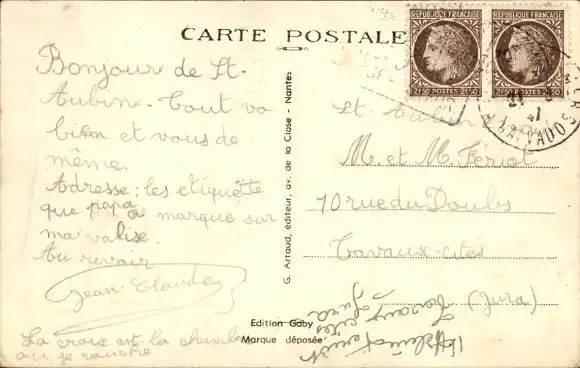 CARTE POSTALE
Bonjour de St.
Aubin. Tout va
bien et vous de
même.
Adresse: les etiquette
que papa a marque sur
ma valise.
Au revoir
Jean Claude
La croix est la chambre
ou je couche
G. Artaud, éditeur, av. de la Close - Nantes
Edition Gaby
Marque déposée
REPUBLIQUE FRANÇAISE
2f50 POSTES 2f50
REPUBLIQUE FRANÇAISE
2f50 POSTES 2f50
CALVADOS
St. Aubin
M. et M. Fériot
10 rue du Doubs
Travaux-cités
(Jura)